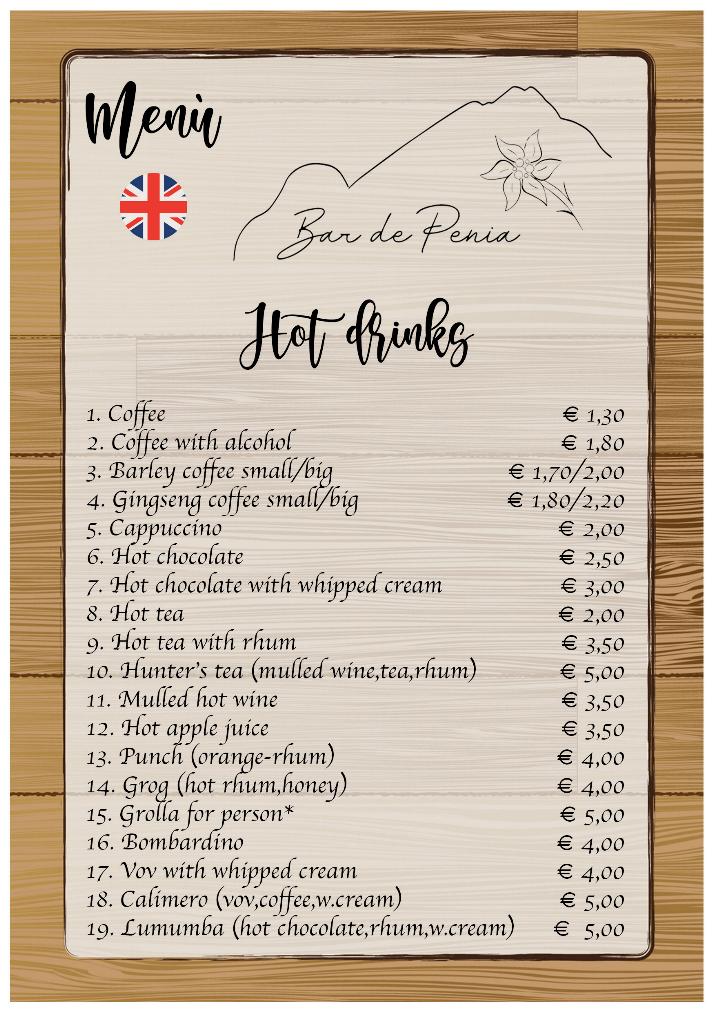 Menù
Bar de Penia
Hot drinks
1. Coffee € 1,30
2. Coffee with alcohol € 1,80
3. Barley coffee small/big € 1,70/2,00
4. Gingseng coffee small/big € 1,80/2,20
5. Cappuccino € 2,00
6. Hot chocolate € 2,50
7. Hot chocolate with whipped cream € 3,00
8. Hot tea € 2,00
9. Hot tea with rhum € 3,50
10. Hunter's tea (mulled wine,tea,rhum) € 5,00
11. Mulled hot wine € 3,50
12. Hot apple juice € 3,50
13. Punch (orange-rhum) € 4,00
14. Grog (hot rhum,honey) € 4,00
15. Grolla for person* € 5,00
16. Bombardino € 4,00
17. Vov with whipped cream € 4,00
18. Calimero (vov,coffee,w.cream) € 5,00
19. Lumumba (hot chocolate,rhum,w.cream) € 5,00